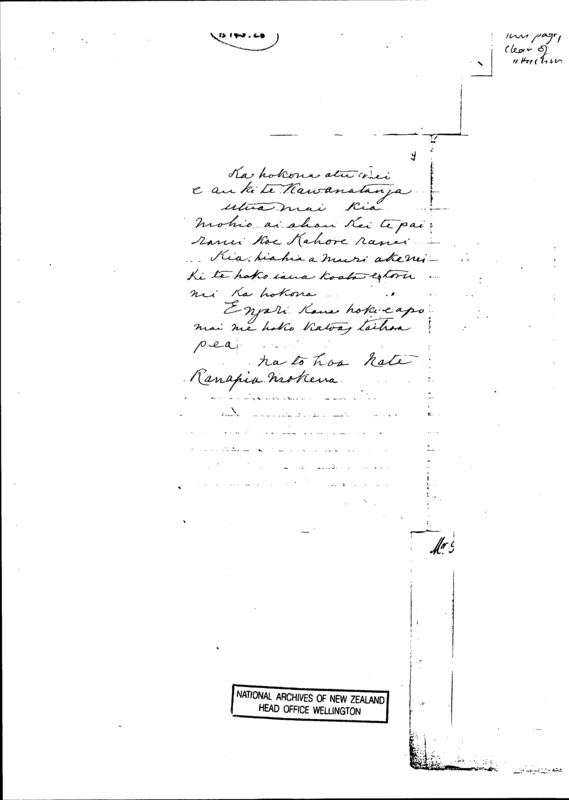 inn page,
clear of
4
Ka hokona atu enei
e au ki te Kawanatanga
utua mai Kia
mohio ai ahau Kei te pai
ranei Koe Kahore ranei
Kia hiahia a muri ake nei
Ki te hoko i aua
nei Ka hokona
Engari Kaua hoki e apo
mai me hoko Katoa taihoa
pea
na to hoa Kate
Kanapia Mokena
Mr S
NATIONAL ARCHIVES OF NEW ZEALAND
HEAD OFFICE WELLINGTON